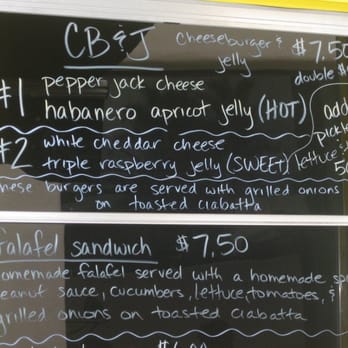 CB&J Cheeseburger & jelly $7.50
double $
#1 pepper jack cheese
habanero apricot jelly (HOT)
add
#2 white cheddar cheese
triple raspberry jelly (SWEET)
lettuce
burgers are served with grilled onions
on toasted ciabatta
falafel sandwich $7.50
homemade falafel served with a homemade
peanut sauce, cucumbers, lettuce, tomatoes, &
grilled onions on toasted ciabatta